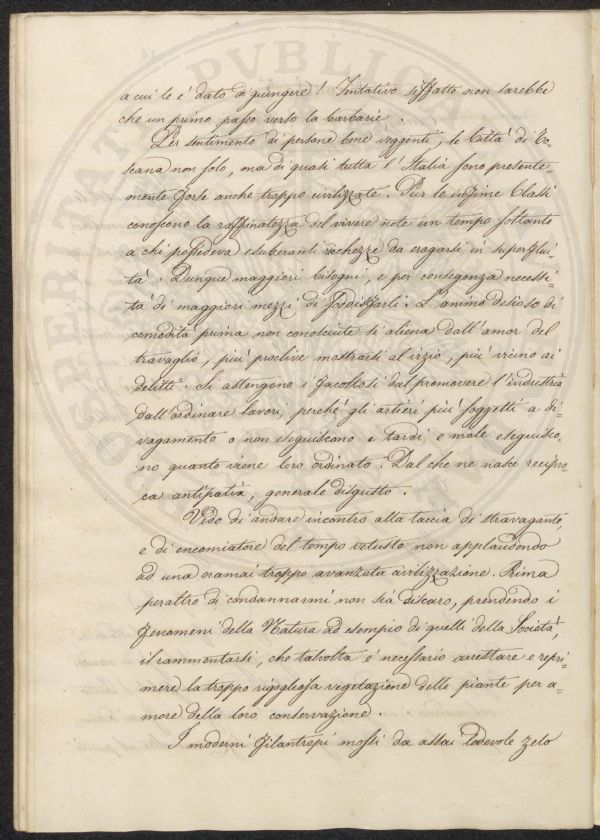 a cui le è dato di giungere! Tentativo siffatto non sarebbe
che un primo passo verso la barbarie.
Per sentimento di persone bene veggenti, le Città di To=
scana non solo, ma di quasi tutta l'Italia sono presente=
mente forse anche troppo civilizzate. Pur le infime Classi
conoscono la raffinatezza del vivere note un tempo soltanto
a chi possedeva esuberanti ricchezze da erogarsi in superflui=
tà. Dunque maggiori bisogni, e per conseguenza necessi=
tà di maggiori mezzi di soddisfarli. L'animo desioso di
comodità prima non conosciute si aliena dall'amor del
travaglio, più proclive mostrasi al vizio, più vicino ai
delitti. Si astengono i facoltosi dal promovere l'industria
dall'ordinare lavori, perchè gli artieri più soggetti a di=
vagamento o non eseguiscono e tardi e male eseguisco=
no quanto viene loro ordinato. Dal che ne nasce recipro=
ca antipatia, generale disgusto.
Vedo di andare incontro alla taccia di stravagante,
e di encomiatore del tempo vetusto non applaudendo
ad una oramai troppo avanzata civilizzazione. Prima
peraltro di condannarmi non sia discaro, prendendo i
fenomeni della Natura ad esempio di quelli della Società,
il rammentarsi, che talvolta è necessario arrestare e repri=
mere la troppo rigogliosa vegetazione delle piante per a=
more della loro conservazione.
I moderni filantropi mossi da assai lodevole zelo